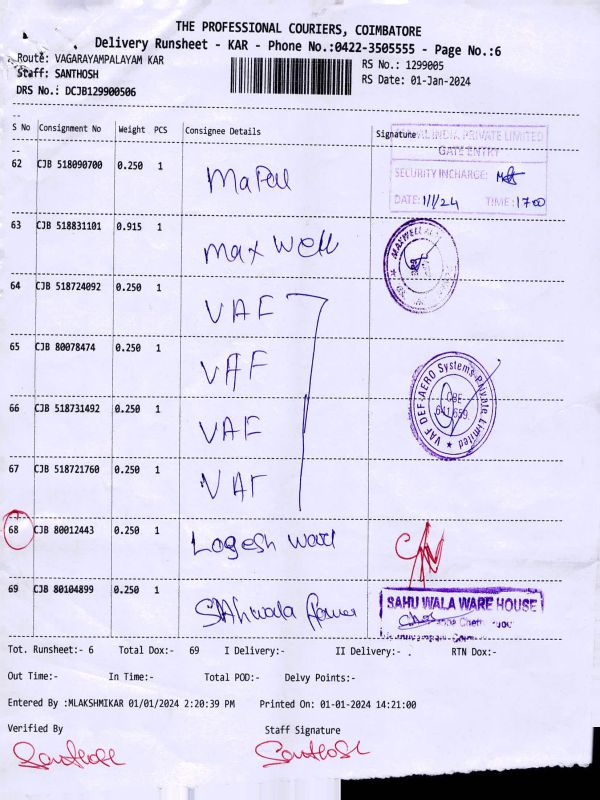 THE PROFESSIONAL COURIERS, COIMBATORE
Delivery Runsheet - KAR - Phone No.:0422-3505555 - Page No.:6
Route: VAGARAYAMPALAYAM KAR
RS No.: 1299005
Staff: SANTHOSH
RS Date: 01-Jan-2024
DRS No.: DCJB129900506
S No Consignment No Weight PCS Consignee Details Signature
AL INDIA PRIVATE LIMITED
GATE ENTRY
SECURITY INCHARGE:
DATE: 1/1/24 TIME: 1700
62 CJB 518090700 0.250 1 Mapal
63 CJB 518831101 0.915 1 Max Well
MAXWELL
64 CJB 518724092 0.250 1 VAF
65 CJB 80078474 0.250 1 VAF
VAF DEF-AERO Systems Private Limited
CBE-
641 659.
66 CJB 518731492 0.250 1 VAF
67 CJB 518721760 0.250 1 VAF
68 CJB 80012443 0.250 1 Logesh
69 CJB 80104899 0.250 1
SAHU WALA WARE HOUSE
Tot. Runsheet:- 6 Total Dox:- 69 I Delivery:- II Delivery:- . RTN Dox:-
Out Time:- In Time:- Total POD:- Delvy Points:-
Entered By :MLAKSHMIKAR 01/01/2024 2:20:39 PM Printed On: 01-01-2024 14:21:00
Verified By Staff Signature
Santhosh Santhosh